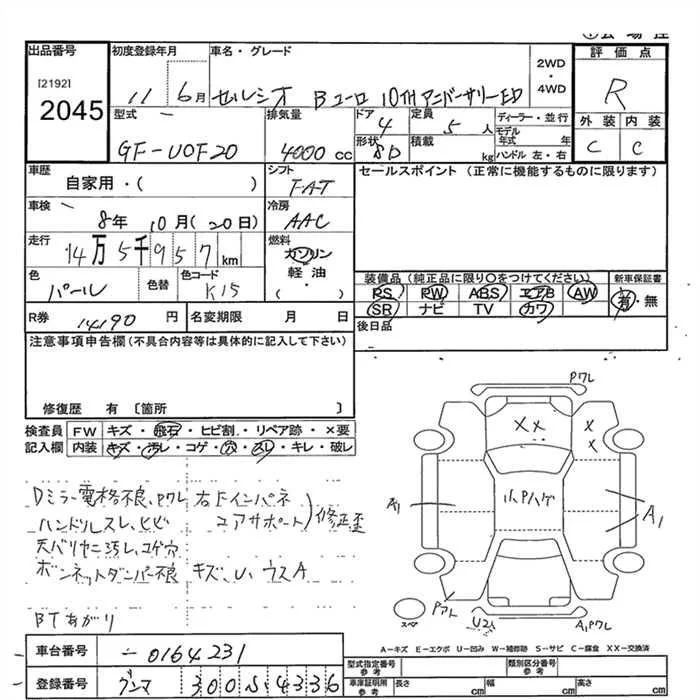 出品番号
[2192]
2045
初度登録年月
11 6月
車名・グレード
セルシオ Bユーロ 10THアニバーサリーED
2WD
・
4WD
評価点
R
外装 内装
C C
型式
GF-UCF20
排気量
4000cc
ドア
4
形状
SD
定員
5人
積載
kg
ディーラー・並行
モデル年式 年
ハンドル 左・右
車歴
自家用・( )
シフト
FAT
冷房
AAC
車検
8年 10月(20日)
走行
14万5千957km
燃料
ガソリン
軽油
・( )
色
パール
色替
色コード
K15
R券
14190円
名変期限 月 日
セールスポイント (正常に機能するものに限ります)
装備品(純正品に限り〇をつけてください)
PS PW ABS エアB AW
SR ナビ TV カワ
新車保証書
有・無
後日品
注意事項申告欄(不具合内容等は具体的に記入して下さい)
修復歴 有〔箇所 〕
検査員記入欄
FW キズ・飛石・ヒビ割・リペア跡・×要
内装 キズ・汚レ・コゲ・穴・スレ・キレ・破レ
Dミラー電格不良、Pワレ 右Fインパネ
ハンドルスレ、ヒビ コアサポート)修正歪
天バリヤニ汚レ、コゲ穴
ボンネットダンパー不良 キズ、U、ウスA
BTあがり
Pワレ
××
×
×
小Pハゲ
A1
A1
Pアト
スペア
U2
A1Pワレ
A-キズ E-エクボ U-凹み W-補修跡 S-サビ C-腐食 XX-交換済
車台番号
-0164231
登録番号
グンマ 300 ソ 4336
型式指定番号
参考
類別区分番号
参考
車庫証明用
参考
長さ cm
幅 cm
高さ cm